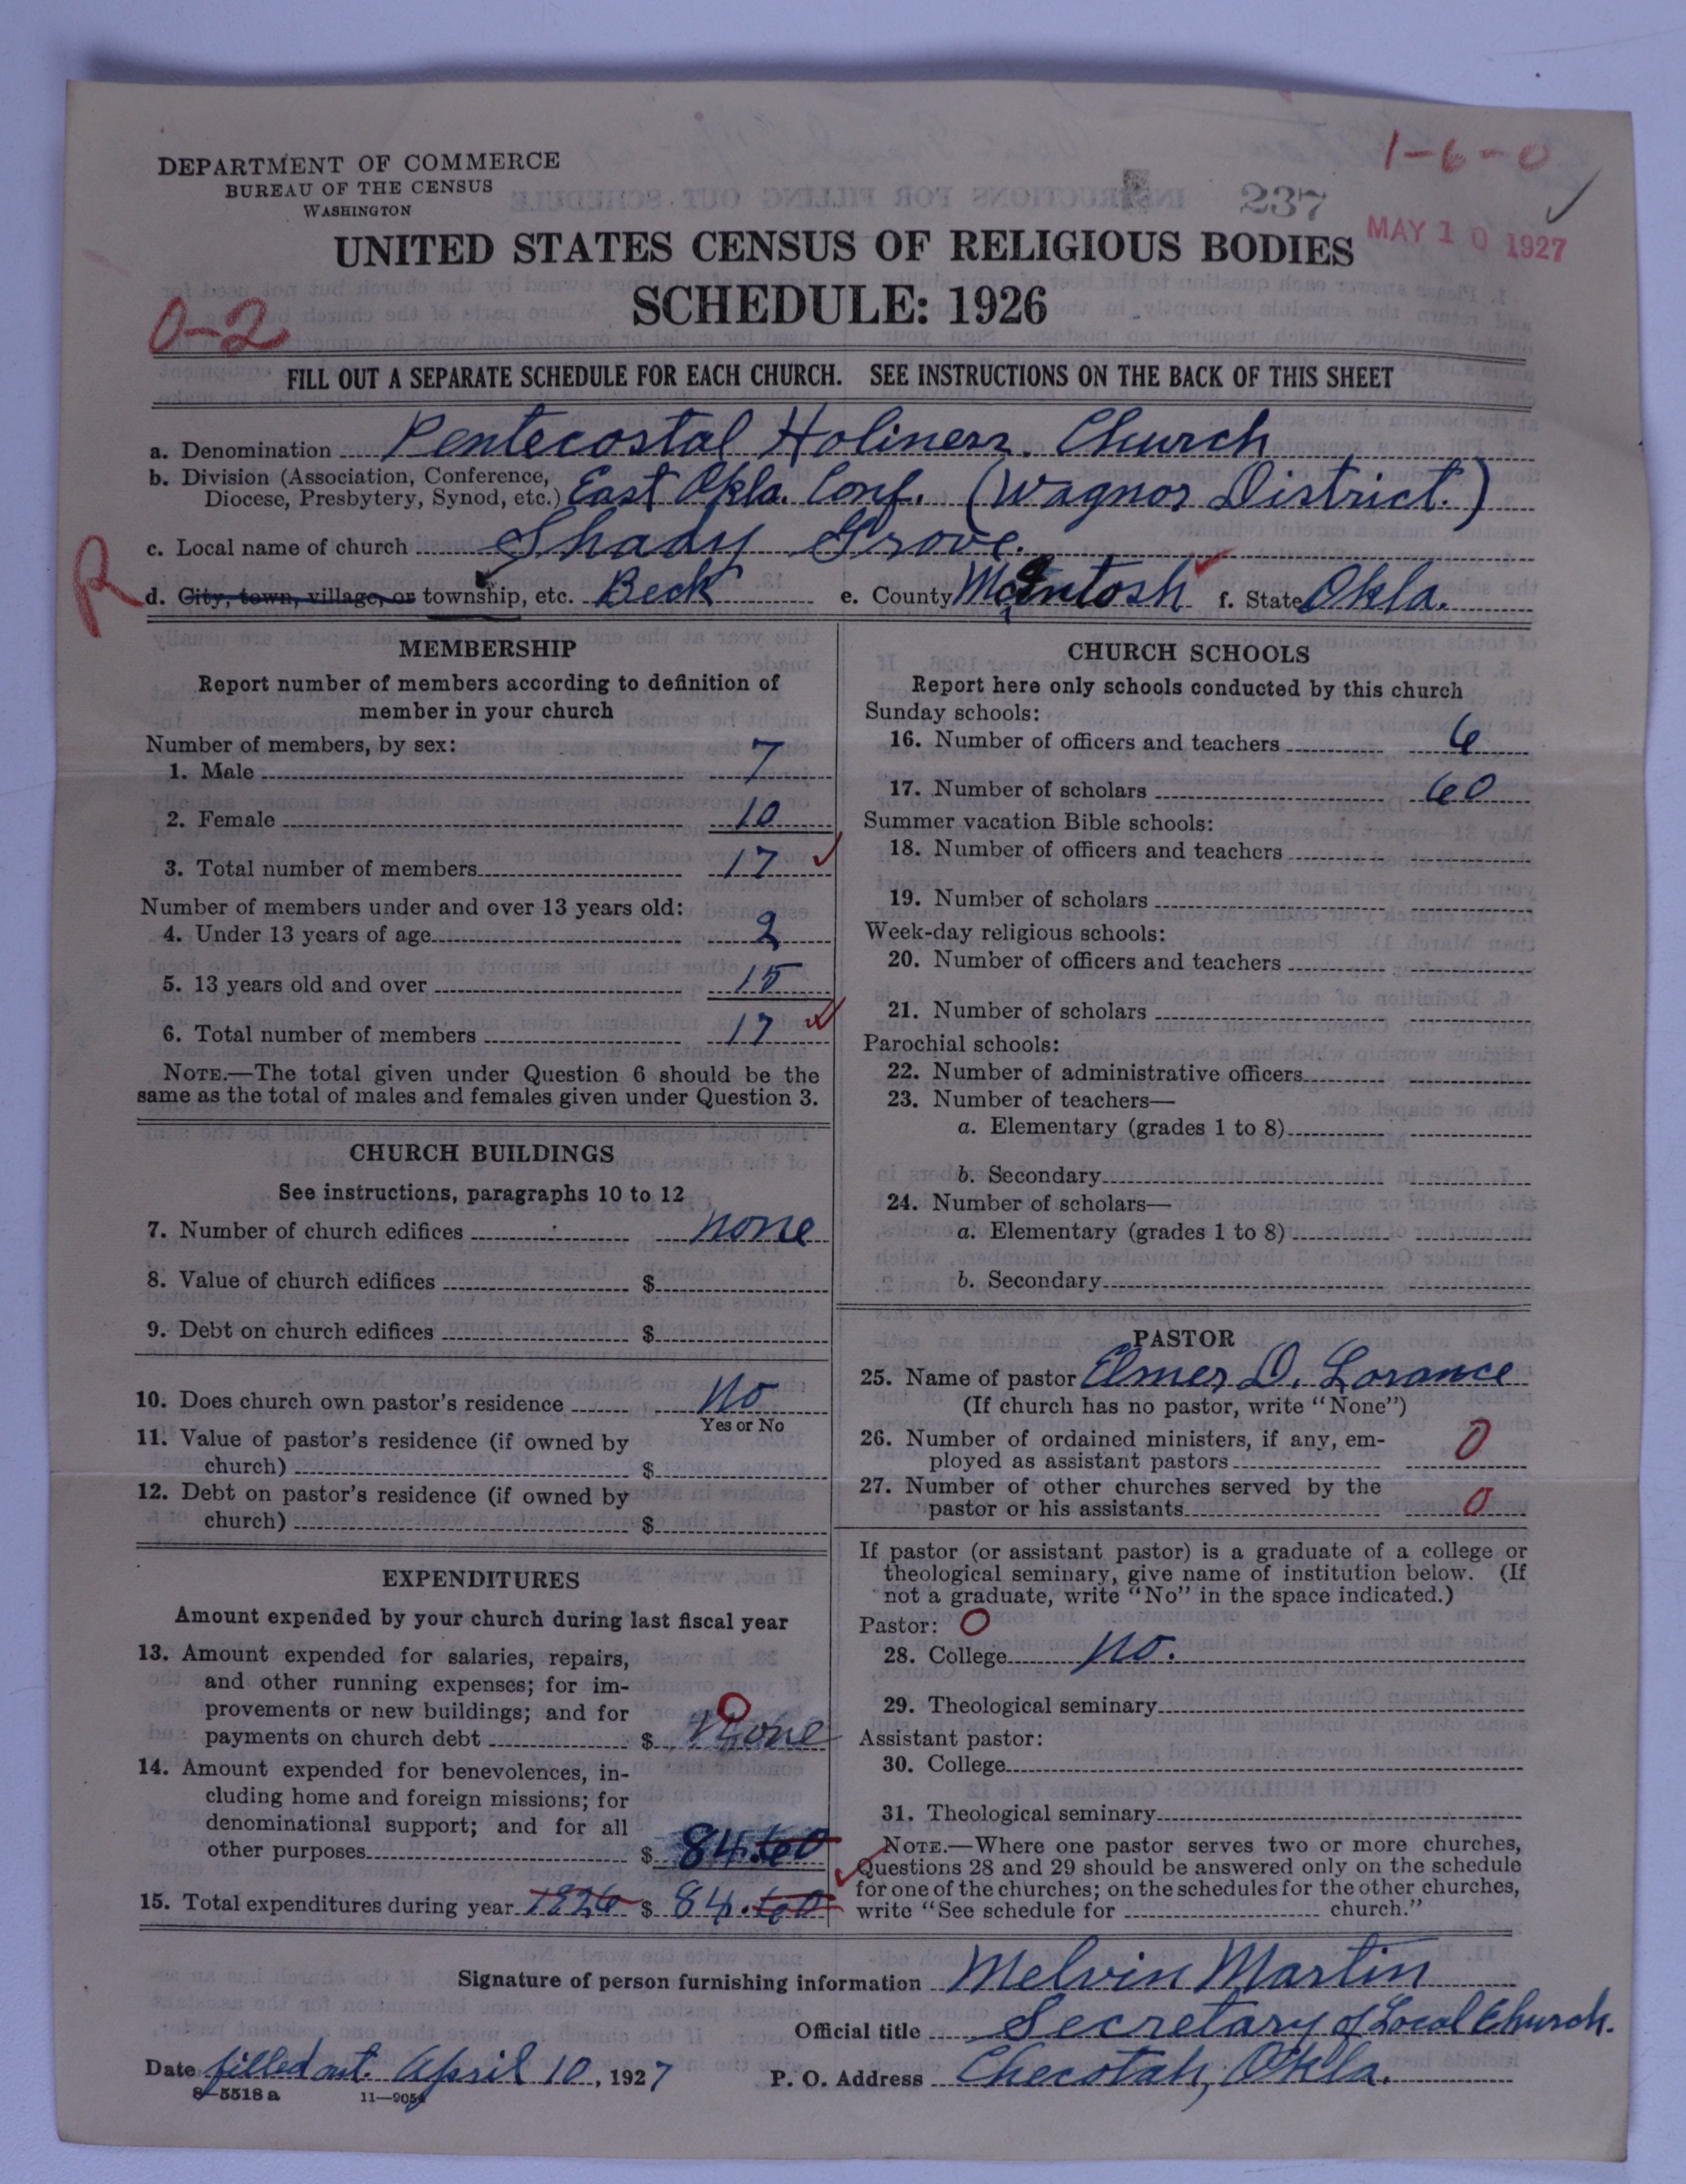 DEPARTMENT OF COMMERCE
BUREAU OF THE CENSUS
WASHINGTON
1-6-0
237
MAY 10 1927
UNITED STATES CENSUS OF RELIGIOUS BODIES
SCHEDULE: 1926
0-2
FILL OUT A SEPARATE SCHEDULE FOR EACH CHURCH. SEE INSTRUCTIONS ON THE BACK OF THIS SHEET
a. Denomination Pentecostal Holiness Church
b. Division (Association, Conference,
Diocese, Presbytery, Synod, etc.) East Okla. Conf. (Wagnor District.)
c. Local name of church Shady Grove.
R
d. City, town, village, or township, etc. Beck e. County McIntosh f. State Okla.
MEMBERSHIP
Report number of members according to definition of
member in your church
Number of members, by sex:
1. Male 7
2. Female 10
3. Total number of members 17
Number of members under and over 13 years old:
4. Under 13 years of age 2
5. 13 years old and over 15
6. Total number of members 17
NOTE.—The total given under Question 6 should be the
same as the total of males and females given under Question 3.
CHURCH BUILDINGS
See instructions, paragraphs 10 to 12
7. Number of church edifices none
8. Value of church edifices $
9. Debt on church edifices $
10. Does church own pastor's residence No
Yes or No
11. Value of pastor's residence (if owned by
church) $
12. Debt on pastor's residence (if owned by
church) $
EXPENDITURES
Amount expended by your church during last fiscal year
13. Amount expended for salaries, repairs,
and other running expenses; for im-
provements or new buildings; and for
payments on church debt $ none 0
14. Amount expended for benevolences, in-
cluding home and foreign missions; for
denominational support; and for all
other purposes $ 84.60
15. Total expenditures during year 1926 $ 84.60
CHURCH SCHOOLS
Report here only schools conducted by this church
Sunday schools:
16. Number of officers and teachers 6
17. Number of scholars 60
Summer vacation Bible schools:
18. Number of officers and teachers
19. Number of scholars
Week-day religious schools:
20. Number of officers and teachers
21. Number of scholars
Parochial schools:
22. Number of administrative officers
23. Number of teachers—
a. Elementary (grades 1 to 8)
b. Secondary
24. Number of scholars—
a. Elementary (grades 1 to 8)
b. Secondary
PASTOR
25. Name of pastor Elmer D. Lorance
(If church has no pastor, write "None")
26. Number of ordained ministers, if any, em-
ployed as assistant pastors 0
27. Number of other churches served by the
pastor or his assistants 0
If pastor (or assistant pastor) is a graduate of a college or
theological seminary, give name of institution below. (If
not a graduate, write "No" in the space indicated.)
Pastor: 0
28. College No.
29. Theological seminary
Assistant pastor:
30. College
31. Theological seminary
NOTE.—Where one pastor serves two or more churches,
Questions 28 and 29 should be answered only on the schedule
for one of the churches; on the schedules for the other churches,
write "See schedule for church."
Signature of person furnishing information Melvin Martin
Official title Secretary of Local Church.
Date filled out. April 10, 1927 P. O. Address Checotah, Okla.
8—5518 a 11—9054